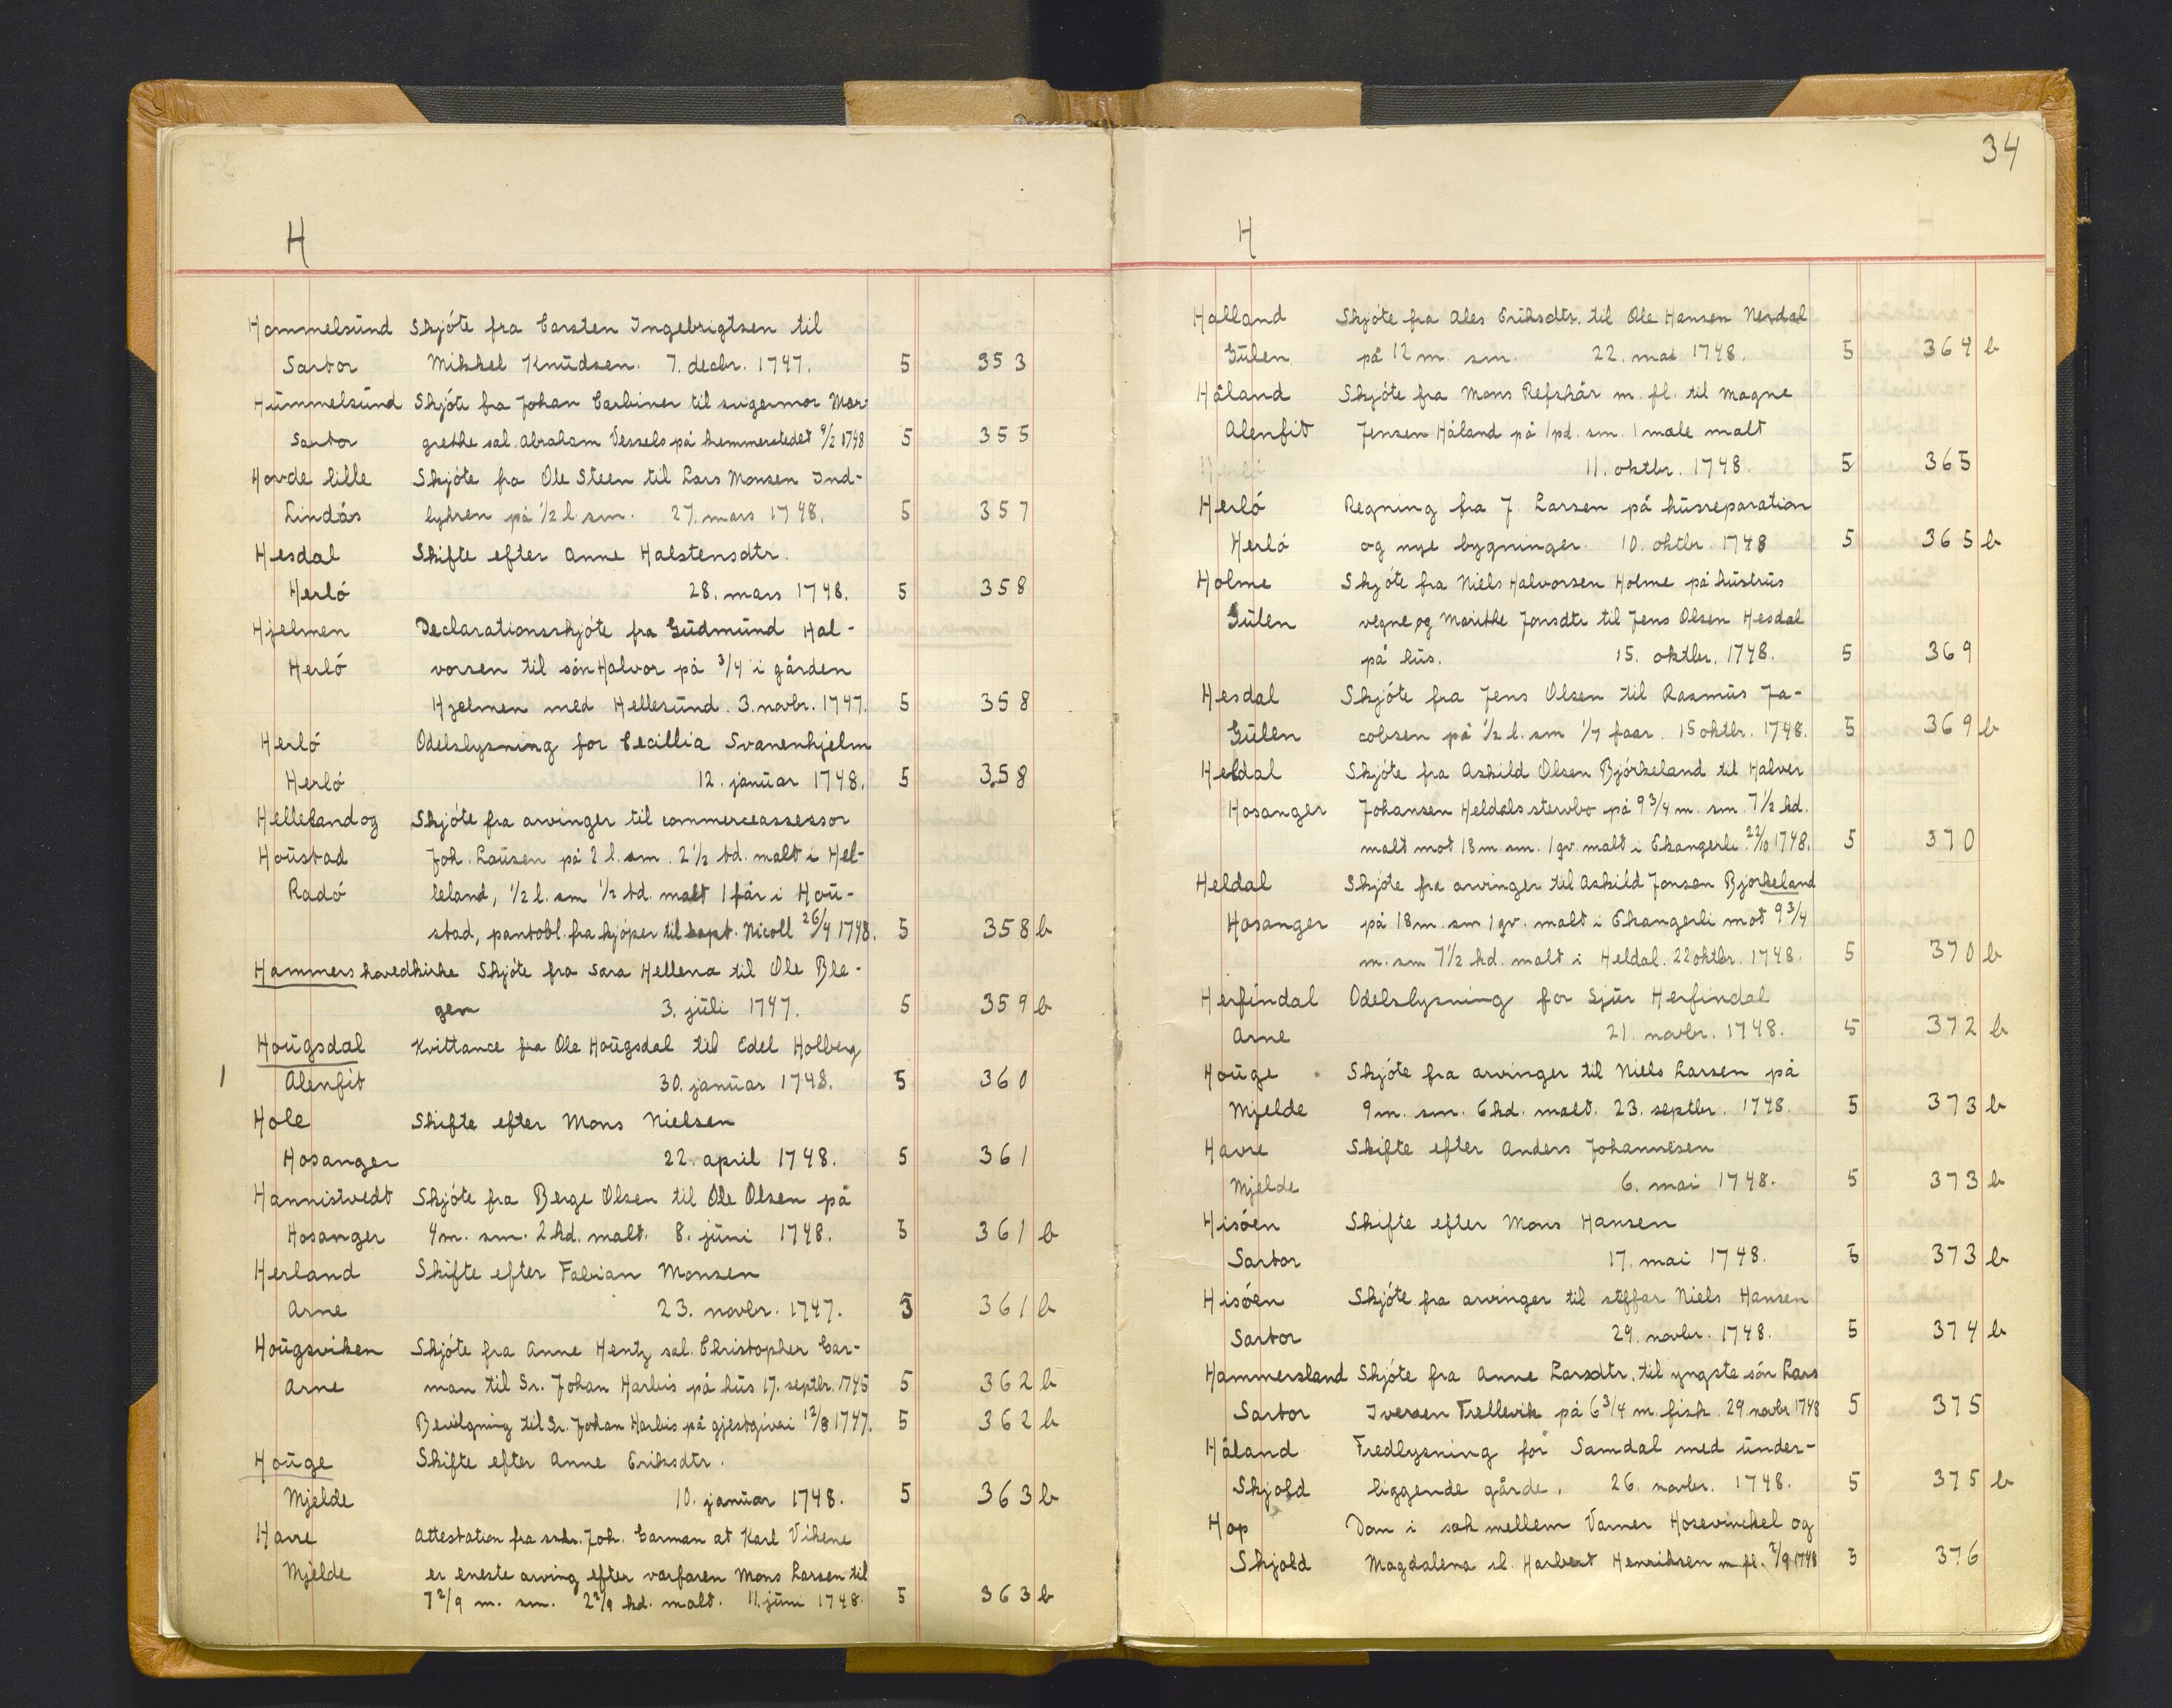 H
Hommelsund Skjóte fra Carsten Ingebrigtsen til
Sartor Mikkel Knudsen. 7. decbr. 1747. 5 353
Hummelsund Skjóte fra Johan Carbiner til svigermor Mar-
Sartor grethe sal. Abraham Vessels på hemmerstedet 9/2 1748 5 355
Hovde lille Skjóte fra Ole Steen til Lars Monsen Ind-
Lindås lyhren på 1/2 l. sm. 27. mars 1748. 5 357
Hesdal Skifte efter Anne Halstensdtr.
Herló 28. mars 1748. 5 358
Hjelmen Declarationsskjóte fra Gudmund Hal-
Herló vorsen til són Halvor på 3/4 i gården
Hjelmen med Hellesund. 3. novbr. 1747. 5 358
Herló Odelslysning for Cecillia Svanenhjelm
Herló 12. januar 1748. 5 358
Helleland og Skjóte fra arvinger til commerceassessor
Houstad Joh. Lausen på 2 l. sm. 2 1/2 td. malt i Hel-
Radó leland, 1/2 l. sm 1/2 td. malt 1 får i Hou-
stad, pantobl. fra kjóper til kapt. Nicoll 26/4 1748. 5 358 b
Hammers hovedkirke Skjóte fra Sara Hellena til Ole Ble-
gen 3. juli 1747. 5 359 b
Hougsdal Kvittance fra Ole Hougsdal til Edel Holberg
1 Alenfit 30. januar 1748. 5 360
Hole Skifte efter Mons Nielsen
Hosanger 22. april 1748. 5 361
Hannistvedt Skjóte fra Berge Olsen til Ole Olsen på
Hosanger 4 m. sm. 2 hd. malt. 8. juni 1748. 5 361 b
Herland Skifte efter Fabian Monsen
Arne 23. novbr. 1747. 5 361 b
Hougsviken Skjóte fra Anne Hentz sal. Christopher Gar-
Arne man til Sr. Johan Harbis på hus 17. septbr. 1745 5 362 b
Bevilgning til Sr. Johan Harbis på gjestgiveri 12/8 1747. 5 362 b
Houge Skifte efter Anne Eriksdtr.
Mjelde 10. januar 1748. 5 363 b
Havre Attestation fra Joh. Garman at Karl Vikene
Mjelde er eneste arving efter varfaren Mons Larsen til
7 2/9 m. sm. 2 2/9 hd. malt. 11. juni 1748. 5 363 b
34
H
Halland Skjóte fra Ales Eriksdtr. til Ole Hansen Nerdal
Gulen på 12 m. sm. 22. mai 1748. 5 364 b
Håland Skjóte fra Mons Refskår m. fl. til Magne
Alenfit Jensen Håland på 1 pd. sm. 1 male malt
11. oktbr. 1748. 5 365
Herló Regning fra J. Larsen på husreparation
Herló og nye bygninger. 10. oktbr. 1748 5 365 b
Holme Skjóte fra Niels Halvorsen Holme på hustrus
Gulen vegne og Marithe Jonsdtr til Jens Olsen Hesdal
på hus. 15. oktbr. 1748. 5 369
Hesdal Skjóte fra Jens Olsen til Rasmus Ja-
Gulen cobsen på 1/2 l. sm 1/4 faar. 15 oktbr. 1748. 5 369 b
Heldal Skjóte fra Askild Olsen Bjórkeland til Halver
Hosanger Johansen Heldals stervbo på 9 3/4 m. sm. 7 1/2 hd.
malt mot 18 m. sm. 1 gv. malt i Ekangerli. 22/10 1748. 5 370
Heldal Skjóte fra arvinger til Askild Jonsen Bjorkeland
Hosanger på 18 m. sm 1 gv. malt i Ekangerli mot 9 3/4
m. sm 7 1/2 hd. malt i Heldal. 22 oktbr. 1748. 5 370 b
Herfindal Odelslysning for Sjur Herfindal
Arne 21. novbr. 1748. 5 372 b
Houge Skjóte fra arvinger til Niels Larsen på
Mjelde 9 m. sm. 6 hd. malt. 23. septbr. 1748. 5 373 b
Havre Skifte efter Anders Johannesen
Mjelde 6. mai 1748. 5 373 b
Hisóen Skifte efter Mons Hansen
Sartor 17. mai 1748. 5 373 b
Hisóen Skjóte fra arvinger til stiffar Niels Hansen
Sartor 29. novbr. 1748. 5 374 b
Hammersland Skjóte fra Anne Larsdtr. til yngste són Lars
Sartor Iversen Trellevik på 6 3/4 m. fisk. 29. novbr 1748 5 375
Håland Fredlysning for Samdal med under-
Skjold liggende gårde. 26. novbr. 1748. 5 375 b
Hop Dom i sak mellem Varner Hosevinckel og
Skjold Magdalena sl. Harbert Henriksen m fl. 2/9 1748 5 376